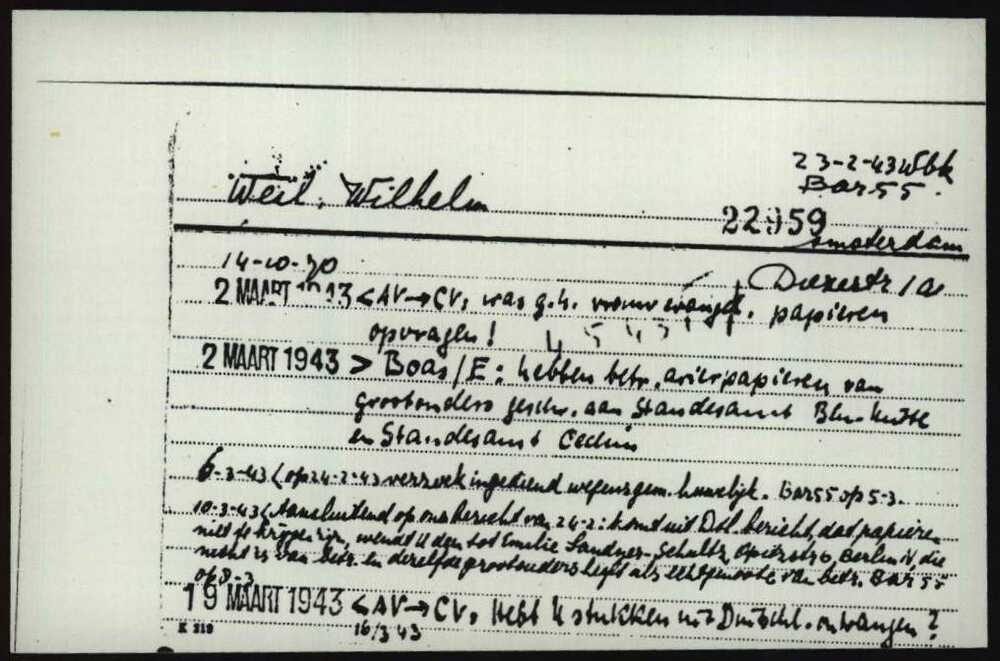 23-2-43 Wbk
Weil, Wilhelm
Bar 55.
22959
Amsterdam
14-10-
2 MAART 1943 < AV → CV, was g.h. vrouw evangel. papieren
opvragen!
2 MAART 1943 > Boas/E: hebben betr. arierpapieren van
grootouders geschr. aan Standesamt
en Standesamt
6-3-43 < op 24-2-43 verzoek ingediend wegens gem. huwelijk. Bar 55 op 5-3.
10-3-43 < Aansluitend op ons bericht van 24-2: komt uit Dtsl. bericht, dat papieren
niet te krijgen zijn, wendt U dan tot Emilie Berlin N, die
nicht is van betr. en derzelfde grootouders heeft als echtgenoote van betr. Bar 55
op 8-3
19 MAART 1943 < AV → CV, Hebt U stukken uit Duitschl. ontvangen?
16/3 43
K 313